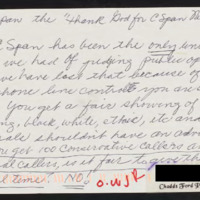 pan the "Thank God for C Span
C Span has been the only
we had of judging public op
we have lost that because of
phone line control you an
You get a fair showing of
black, white, ethic, etc and
shouldn't have an adv
you get 100 conservative callers a
callers, is it fair to give th
time. NO,
O.WJR
Chadds Ford P